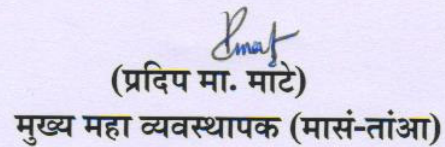 (प्रदिप मा. माटे)
मुख्य महा व्यवस्थापक (मासं-तांआ)